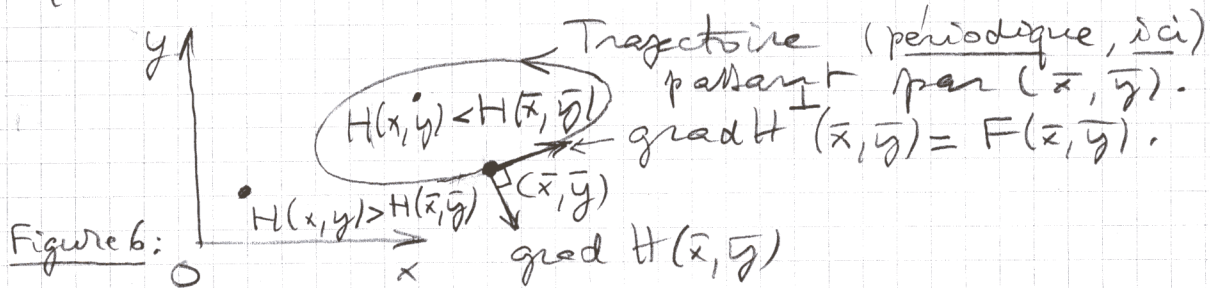 y
Trajectoire (périodique, ici)
passant par (x̄, ȳ).
H(x,y) < H(x̄, ȳ)
grad H⊥ (x̄, ȳ) = F(x̄, ȳ).
(x̄, ȳ)
H(x,y) > H(x̄, ȳ)
Figure 6:
O
x
grad H(x̄, ȳ)